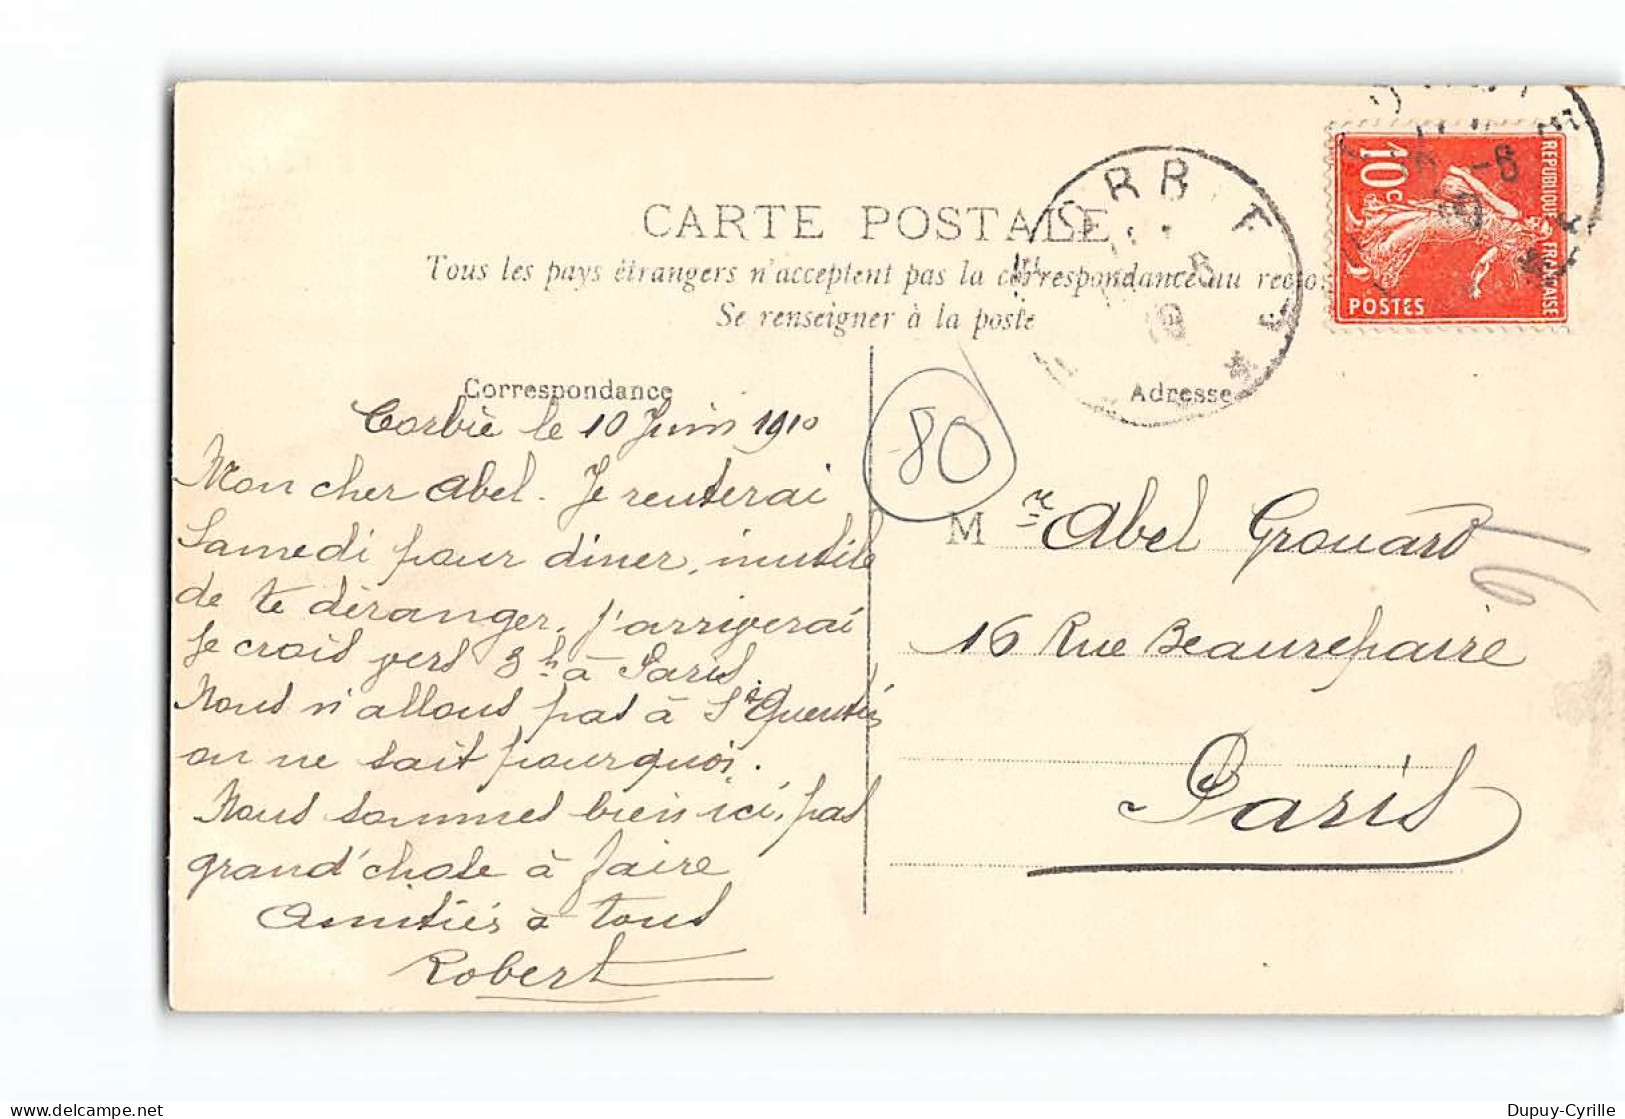 CARTE POSTALE
Tous les pays étrangers n'acceptent pas la correspondance au recto
Se renseigner à la poste
Correspondance
Adresse
CORBIE
REPUBLIQUE FRANÇAISE
10c
POSTES
80
Corbie le 10 Juin 1910
Mon cher Abel. Je renterai
Samedi pour diner, inutile
de te déranger. J'arriverai
Je crois vers 3h à Paris.
Nous n'allons pas à St Quentin
on ne sait pourquoi.
Nous sommes bien ici, pas
grand'chose à faire
Amitiés à tous
Robert
Mr Abel Grouard
16 Rue Beaurepaire
Paris
Delcampe.net
Dupuy-Cyrille